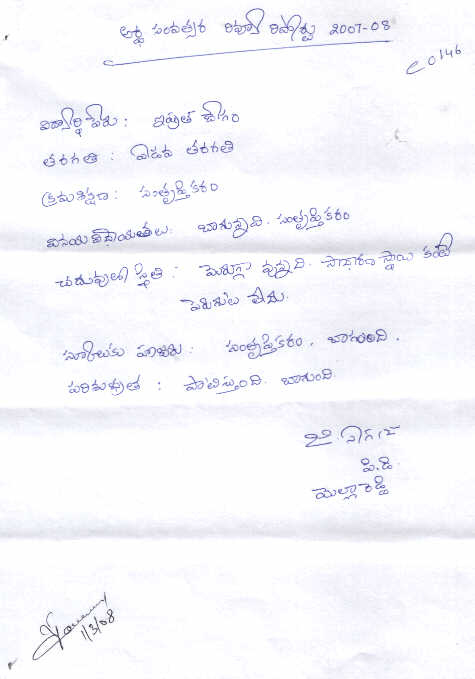 అర్థ సంవత్సర రివ్యూ రిపోర్టు 2007-08
C 0146
విద్యార్థి పేరు :
తరగతి : ఏడవ తరగతి
క్రమశిక్షణ : సంతృప్తికరం
వినయ విధేయతలు : బాగున్నవి. సంతృప్తికరం
చదువులో స్థితి : మెరుగ్గా వున్నది. సాధారణ స్థాయి కంటే
పెరుగుదల లేదు.
స్కూలుకు హాజరు : సంతృప్తికరం, బాగుంది.
పరిశుభ్రత : పాటిస్తుంది. బాగుంది
పి.డి.
మెల్లారెడ్డి
1/3/08